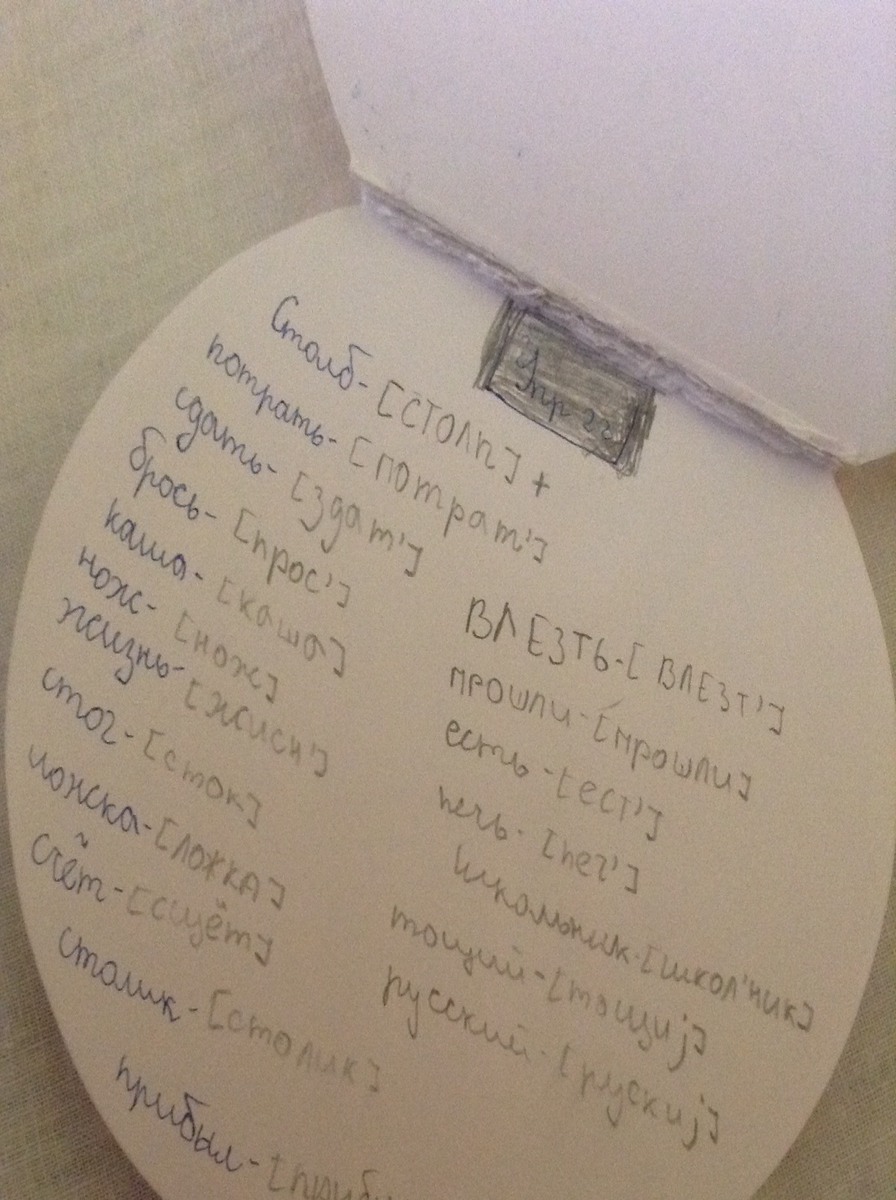 Упр 22
Столб- [СТОЛП] +
потрать- [потрат']
сдать- [здат']
брось- [прос']
каша- [каша]
нож- [нож]
жизнь- [жисн']
стог- [сток]
ложка- [ложка]
счёт- [сщёт]
столик- [столик]
прибыл-
ВЛЕЗТЬ- [ВЛЕЗТ']
прошли- [прошли]
есть- [ест']
печь- [
школьник- [школ'ник]
тощий- [тощиj]
русский- [рускиj]